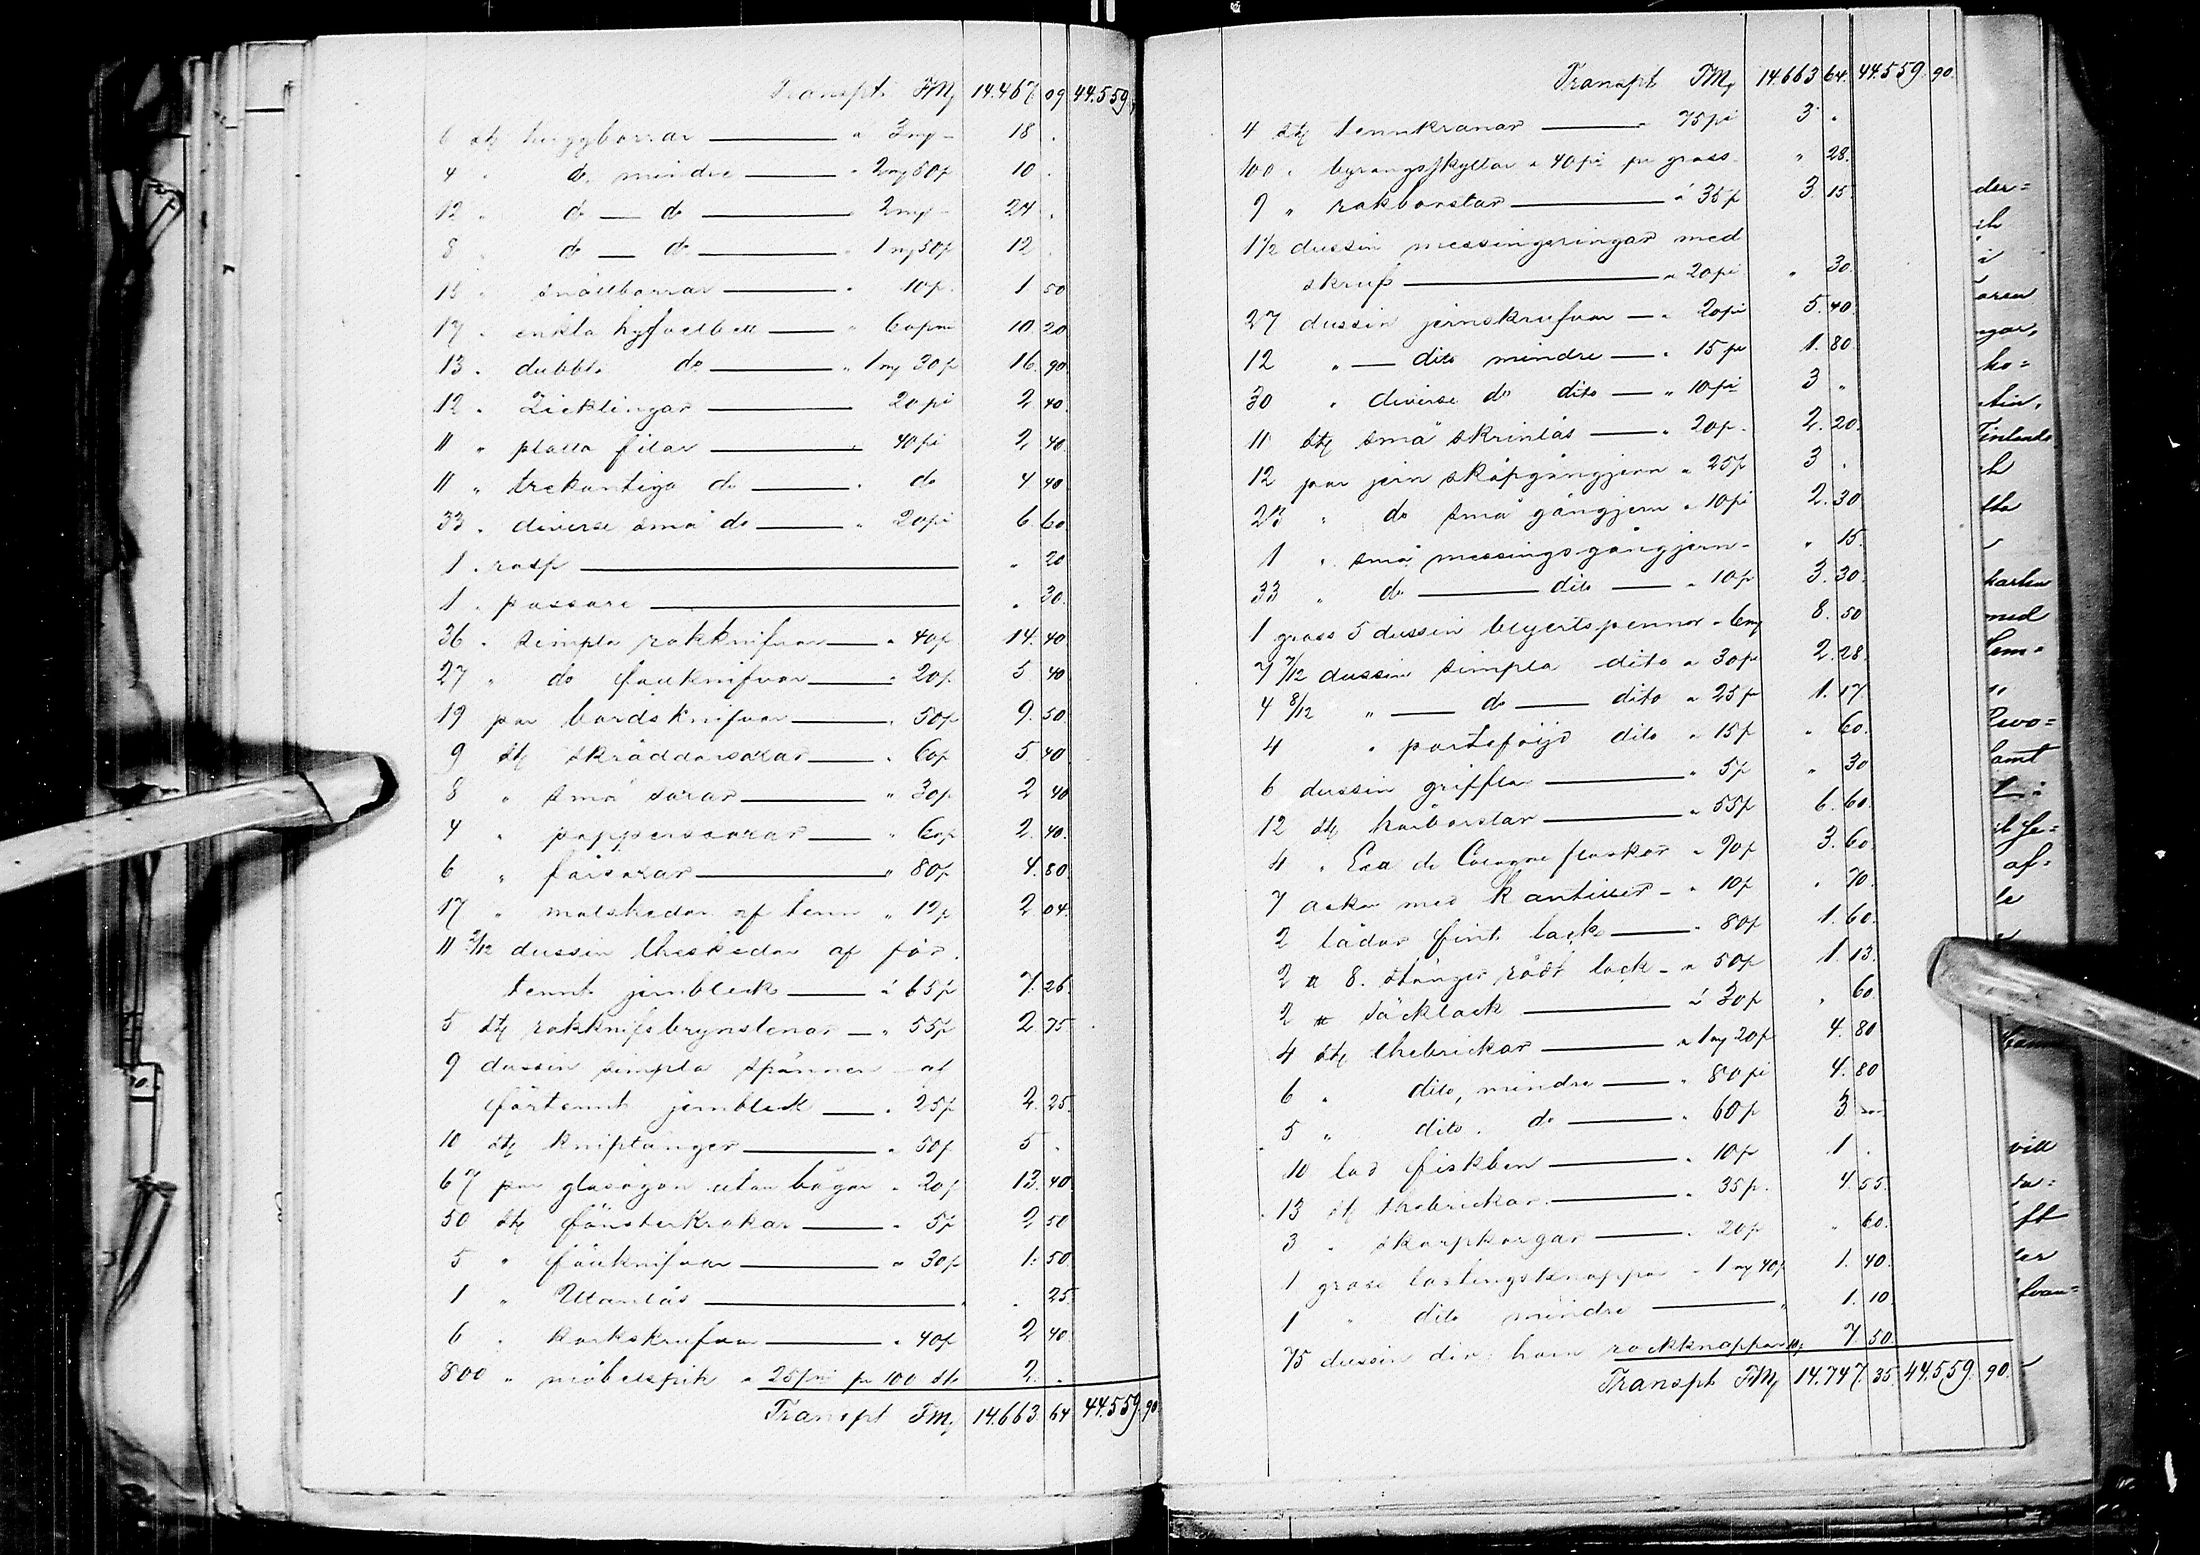 Transpt. FM, 14.467. 09 44.559,
6 st huggborrar — a 3 m — 18 .
4 " do mindre — " 2 m 50 p 10 .
12 " do — do — " 2 m — 24 .
8 " do — do — " 1 m 50 p 12 .
15 " snällborrar — " 10 p. 1 50
17 " enkla hyfvelbett — " 60 pni 10 20
13 " dubbl. do — " 1 m 30 p 16. 90
12 " Zicklingar — 20 pi 2 40.
11 " platta filar — " 40 pi 2, 40.
11 " trekantiga do — " do 4 40
33 " diverse små do — " 20 pi 6 60
1 " rasp — " 20
1 " passare — " 30.
36 " simpla rakknifvar — " 40 p 14. 40
27 " do fällknifvar — " 20 p 5 40
19 par bordsknifvar — " 50 p 9. 50.
9 st skräddarsaxar — " 60 p 5 40
8 " små saxar — " 30 p 2 40
4 " papperssaxar — " 60 p 2. 40.
6 " fårsaxar — " 80 p 4. 80.
17 " matskedar af tenn " 12 p 2 04.
11 2/12 dussin theskedar af för-
tennt jernbleck — á 65 p 7. 26.
5 st rakknifsbrynstenar — " 55 p 2 75
9 dussin simpla spännen af
förtennt jernbleck — " 25 p 2. 25.
10 st kniptänger — " 50 p 5 .
67 par glasögon utan bågar " 20 p 13. 40.
50 st fönsterkrokar — " 5 p 2 50
5 " fällknifvar — " 30 p 1. 50.
1 " Utanlås — " . 25.
6 " korkskrufvar — " 40 p 2 40
800 " möbelspik a 25 pni pr 100 st. 2. .
Transpt FM, 14.663. 64 44.559. 90
Transpt FM, 14.663 64. 44.559. 90.
4 st tennkranar — " 75 pi 3 .
100 " byrångsskyltar a 40 pi pr gross " 28.
9 " rakborstar — á 35 p 3. 15.
1 1/2 dussin messingsringar med
skruf — a 20 pi " 30.
27 dussin jernskrufvar — " 20 pi 5. 40.
12 " — dito mindre — " 15 pi 1. 80.
30 " diverse do dito — " 10 pi 3 "
11 st små skrinlås — " 20 p. 2. 20.
12 par jern skåpgångjern a 25 p 3 .
23 " do små gångjern " 10 pi 2. 30.
1 " små messings-gångjern — " 15.
33 " do — dito — " 10 p 3. 30.
1 gross 5 dussin blyertspennor " 6 m 8. 50
7 7/12 dussin simpla dito a 30 p 2. 28.
4 8/12 " — do — dito a 25 p 1. 17.
4 " portefölj dito " 15 p " 60.
6 dussin grifflar — " 5 p " 30
12 st hårborstar — " 55 p 6. 60.
4 " Eau de Cologne flaskor " 90 p 3. 60.
7 askar med kantiller — " 10 p " 70.
2 lådor fint lack — " 80 p 1. 60.
2 " 8. stänger rödt lack — a 50 p 1. 13.
2 " säcklack — á 30 p " 60.
4 st thebrickor — a 1 m 20 p 4. 80
6 " dito, mindre — " 80 pi 4. 80
5 " dito. do — " 60 p 3 —
10 lod fiskben — " 10 p 1 .
13 st thebrickor — " 35 p. 4. 55.
3 " skorpkorgar — " 20 p " 60.
1 gross lastingsknappar " 1 m 40 p 1. 40.
1 " dito mindre — " 1. 10.
75 dussin div. horn rockknappar 7. 50.
Transpt FM, 14.747. 35. 44.559. 90.
der=
ngar,
ko=
Finlands
med
samt
af=
vill